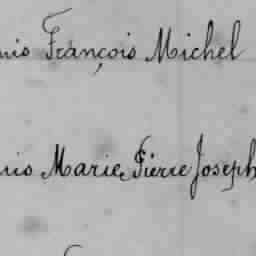 François Michel
Marie Pierre Joseph